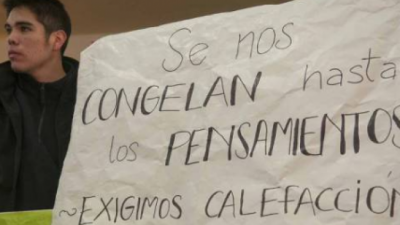 Se nos
CONGELAN hasta
los PENSAMIENTOS
~EXIGIMOS CALEFACCIÓN